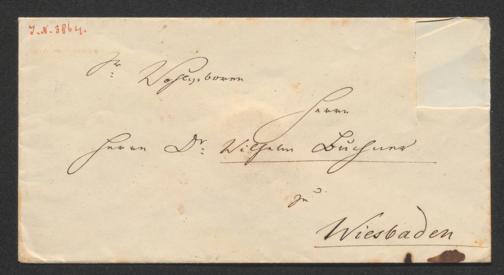 J. N. 3864.
Sr. Wohlgeboren
Herrn
Herrn Dr. Wilhelm Buchner
zu
Wiesbaden